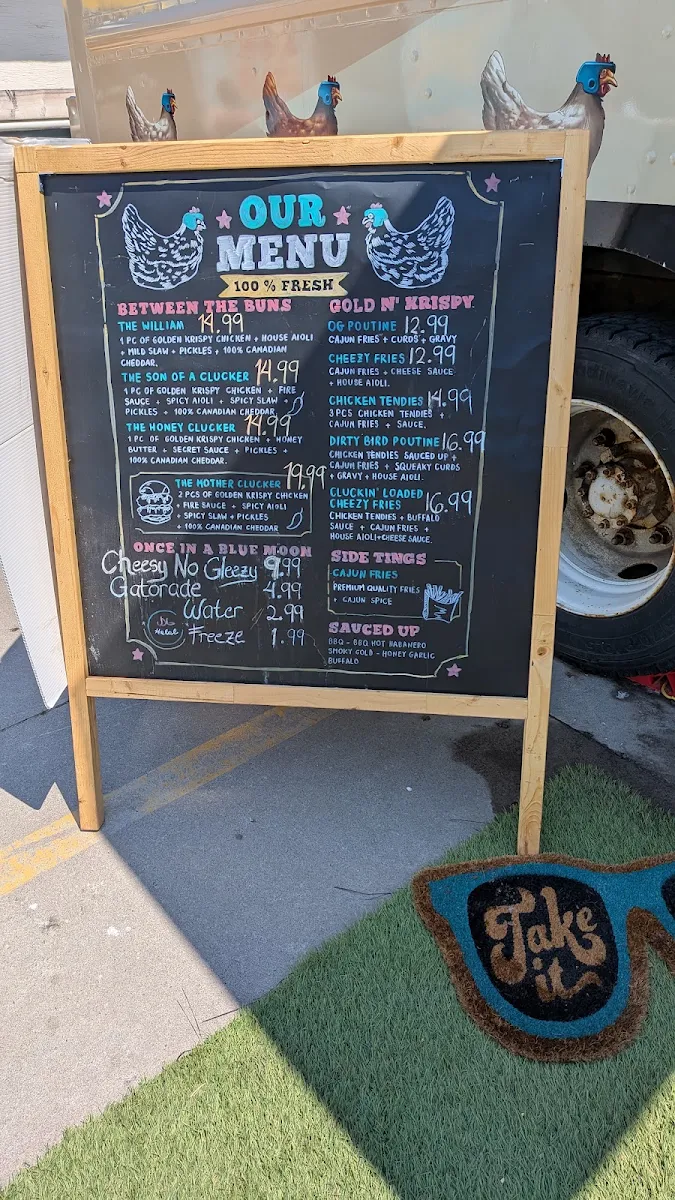 OUR
MENU
100 % FRESH
BETWEEN THE BUNS
THE WILLIAM 14.99
1 PC OF GOLDEN KRISPY CHICKEN + HOUSE AIOLI
+ MILD SLAW + PICKLES + 100% CANADIAN
CHEDDAR.
THE SON OF A CLUCKER 14.99
1 PC OF GOLDEN KRISPY CHICKEN + FIRE
SAUCE + SPICY AIOLI + SPICY SLAW +
PICKLES + 100% CANADIAN CHEDDAR
THE HONEY CLUCKER 14.99
1 PC OF GOLDEN KRISPY CHICKEN + HONEY
BUTTER + SECRET SAUCE + PICKLES +
100% CANADIAN CHEDDAR.
THE MOTHER CLUCKER 19.99
2 PCS OF GOLDEN KRISPY CHICKEN
+ FIRE SAUCE + SPICY AIOLI
+ SPICY SLAW + PICKLES
+ 100% CANADIAN CHEDDAR
ONCE IN A BLUE MOON
Cheesy No Gleezy 9.99
Gatorade 4.99
Water 2.99
Freeze 1.99
Halal
GOLD N' KRISPY
OG POUTINE 12.99
CAJUN FRIES + CURDS + GRAVY
CHEEZY FRIES 12.99
CAJUN FRIES + CHEESE SAUCE
+ HOUSE AIOLI.
CHICKEN TENDIES 14.99
3 PCS CHICKEN TENDIES +
CAJUN FRIES + SAUCE.
DIRTY BIRD POUTINE 16.99
CHICKEN TENDIES SAUCED UP +
CAJUN FRIES + SQUEAKY CURDS
+ GRAVY + HOUSE AIOLI.
CLUCKIN' LOADED
CHEEZY FRIES 16.99
CHICKEN TENDIES + BUFFALO
SAUCE + CAJUN FRIES +
HOUSE AIOLI+CHEESE SAUCE.
SIDE TINGS
CAJUN FRIES
PREMIUM QUALITY FRIES
+ CAJUN SPICE
SAUCED UP
BBQ - BBQ HOT HABANERO
SMOKY GOLD - HONEY GARLIC
BUFFALO
Take
it